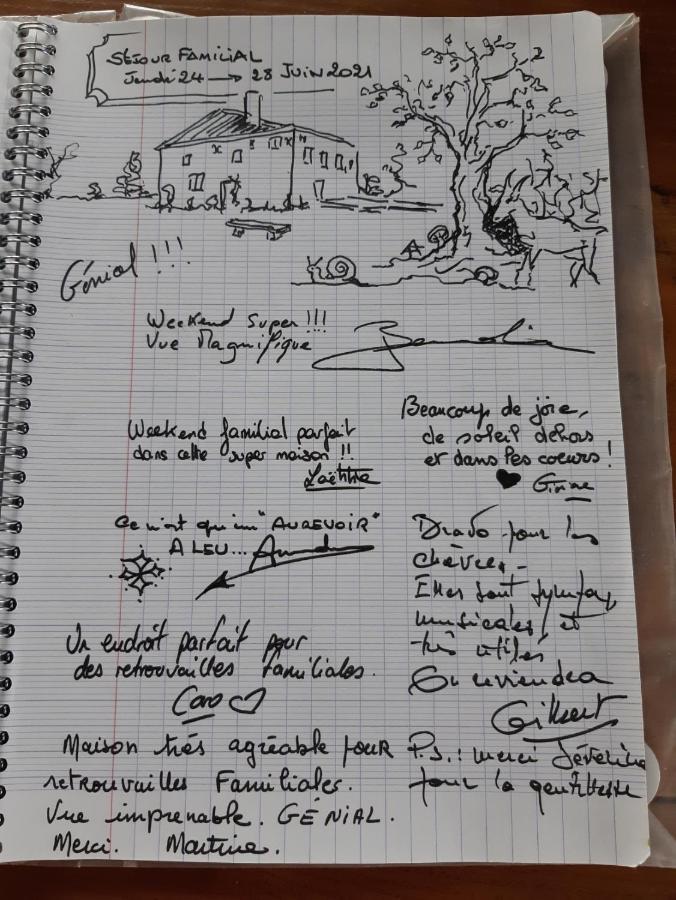 SÉJOUR FAMILIAL
Jeudi 24 → 28 JUIN 2021
Génial !!!
Weekend Super !!!
Vue Magnifique
Weekend familial parfait
dans cette super maison !!
Laëtitia
Beaucoup de joie,
de soleil dehors
et dans les coeurs !
Ce n'est qu'un "AUREVOIR"
A LEU...
Bravo pour les
chèvres -
Elles sont sympas,
musicales, et
très utiles
On reviendra
Gilbert
Un endroit parfait pour
des retrouvailles familiales.
Caro
Maison très agréable pour
retrouvailles Familiales.
Vue imprenable. GÉNIAL.
Merci. Martine.
P.S.: merci Séverine
pour la gentillesse